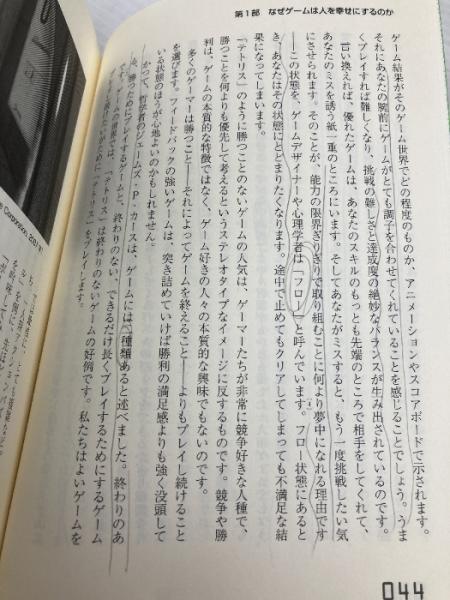 第1部 なぜゲームは人を幸せにするのか
ゲーム結果がそのゲーム世界でどの程度のものか、アニメーションやスコアボードで示されます。
それにあなたの腕前にゲームがとても調子を合わせてくれていることを感じることでしょう。うま
くプレイすれば難しくなり、挑戦の難しさと達成度の絶妙なバランスが生み出されているのです。
言い換えれば、優れたゲームは、あなたのスキルのもっとも先端のところで相手をしてくれて、
あなたがミスを誘う紙一重のところにいます。そしてあなたがミスすると、もう一度挑戦したい気
にさせられます。そのことが、能力の限界ぎりぎりで取り組むことに何より夢中になれる理由です
――この状態を、ゲームデザイナーや心理学者は「フロー」と呼んでいます。フロー状態にあると
き、あなたはその状態にとどまりたくなります。途中で止めてもクリアしてしまっても不満足な結
果になってしまいます。
「テトリス」のように勝つことのないゲームの人気は、ゲーマーたちが非常に競争好きな人種で、
勝つことを何よりも優先して考えるというステレオタイプなイメージに反するものです。競争や勝
利は、ゲームの本質的な特徴ではなく、ゲーム好きの人々の本質的な興味でもないのです。
多くのゲーマーは勝つこと――それによってゲームを終えること――よりもプレイし続けること
を選びます。フィードバックの強いゲームは、突き詰めていけば勝利の満足感よりも強く没頭して
いる状態のほうが心地よいのかもしれません。
かつて、哲学者のジェームズ・P・カースは、ゲームには二種類あると述べました。終わりのあ
る、勝つためにプレイするゲームと、終わりのない、できるだけ長くプレイするためにするゲーム
は終わりのないゲームの好例です。私たちはよいゲームを
「テトリス」をプレイします。
044